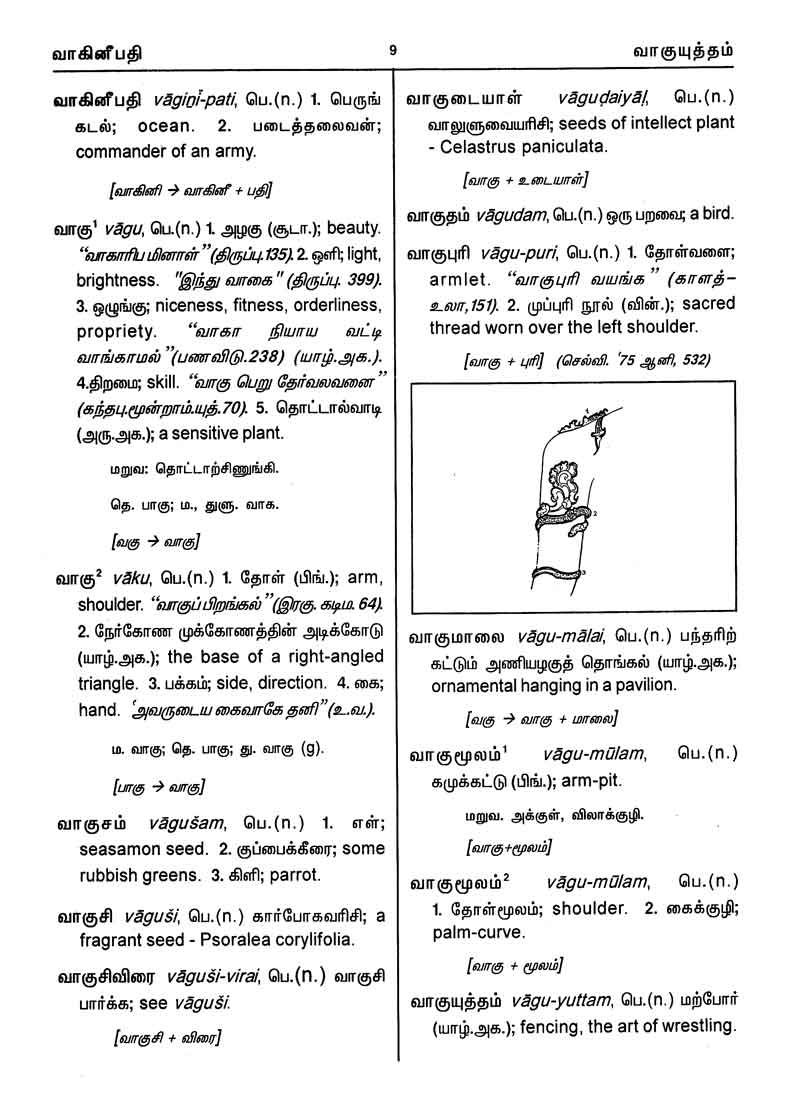 வாகினீபதி
9
வாகுயுத்தம்
வாகினீபதி vāgiṉī-pati, பெ.(n.) 1. பெருங்
கடல்; ocean. 2. படைத்தலைவன்;
commander of an army.
[வாகினி → வாகினீ + பதி]
வாகு¹ vāgu, பெ.(n.) 1. அழகு (சூடா.); beauty.
“வாகாரிப மினாள்” (திருப்பு.135). 2. ஒளி; light,
brightness. "இந்து வாகை" (திருப்பு. 399).
3. ஒழுங்கு; niceness, fitness, orderliness,
propriety. “வாகா நியாய வட்டி
வாங்காமல்”(பணவிடு.238) (யாழ்.அக.).
4.திறமை; skill. “வாகு பெறு தேர்வலவனை”
(கந்தபு.மூன்றாம்.யுத்.70). 5. தொட்டால்வாடி
(அரு.அக.); a sensitive plant.
மறுவ: தொட்டாற்சிணுங்கி.
தெ. பாகு; ம., துளு. வாக.
[வகு → வாகு]
வாகு² vāku, பெ.(n.) 1. தோள் (பிங்.); arm,
shoulder. “வாகுப் பிறங்கல்”(இரகு. கடிம. 64).
2. நேர்கோண முக்கோணத்தின் அடிக்கோடு
(யாழ்.அக.); the base of a right-angled
triangle. 3. பக்கம்; side, direction. 4. கை;
hand. ‘அவருடைய கைவாகே தனி”(உ.வ.).
ம. வாகு; தெ. பாகு; து. வாகு (g).
[பாகு → வாகு]
வாகுசம் vāguśam, பெ.(n.) 1. எள்;
seasamon seed. 2. குப்பைக்கீரை; some
rubbish greens. 3. கிளி; parrot.
வாகுசி vāguśi, பெ.(n.) கார்போகவரிசி; a
fragrant seed - Psoralea corylifolia.
வாகுசிவிரை vāguśi-virai, பெ.(n.) வாகுசி
பார்க்க; see vāguśi.
[வாகுசி + விரை]
வாகுடையாள் vāguḍaiyāḷ, பெ.(n.)
வாலுளுவையரிசி; seeds of intellect plant
- Celastrus paniculata.
[வாகு + உடையாள்]
வாகுதம் vāgudam, பெ.(n.) ஒரு பறவை; a bird.
வாகுபுரி vāgu-puri, பெ.(n.) 1. தோள்வளை;
armlet. “வாகுபுரி வயங்க” (காளத்-
உலா,151). 2. முப்புரி நூல் (வின்.); sacred
thread worn over the left shoulder.
[வாகு + புரி] (செல்வி. ’75 ஆனி, 532)
1
2
3
வாகுமாலை vāgu-mālai, பெ.(n.) பந்தரிற்
கட்டும் அணியழகுத் தொங்கல் (யாழ்.அக.);
ornamental hanging in a pavilion.
[வகு → வாகு + மாலை]
வாகுமூலம்¹ vāgu-mūlam, பெ.(n.)
கமுக்கட்டு (பிங்.); arm-pit.
மறுவ. அக்குள், விலாக்குழி.
[வாகு+மூலம்]
வாகுமூலம்² vāgu-mūlam, பெ.(n.)
1. தோள்மூலம்; shoulder. 2. கைக்குழி;
palm-curve.
[வாகு + மூலம்]
வாகுயுத்தம் vāgu-yuttam, பெ.(n.) மற்போர்
(யாழ்.அக.); fencing, the art of wrestling.